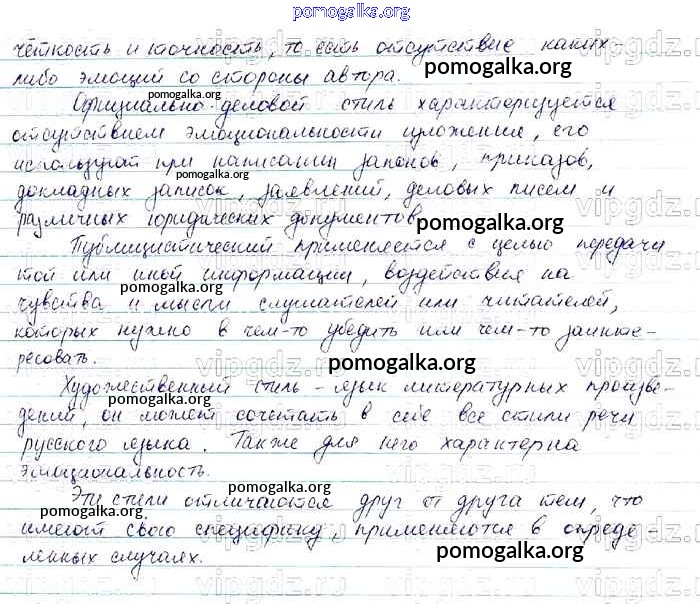 pomogalka.org
чёткость и точность, то есть отсутствие каких-
либо эмоций со стороны автора. pomogalka.org
Официально-деловой стиль характеризуется
отсутствием эмоциональности изложения, его
используют при написании законов, приказов,
pomogalka.org
докладных записок, заявлений, деловых писем и
различных юридических документов. pomogalka.org
Публицистический применяется с целью передачи
той или иной информации, воздействия на
pomogalka.org
чувства и мысли слушателей или читателей,
которых нужно в чём-то убедить или чем-то заинте-
ресовать. pomogalka.org
Художественный стиль - язык литературных произве-
дений, он может сочетать в себе все стили речи
pomogalka.org
русского языка. Также для него характерна
эмоциональность.
pomogalka.org
Эти стили отличаются друг от друга тем, что
имеют свою специфику, применяются в опреде-
pomogalka.org
ленных случаях. pomogalka.org
vipgdz.ru